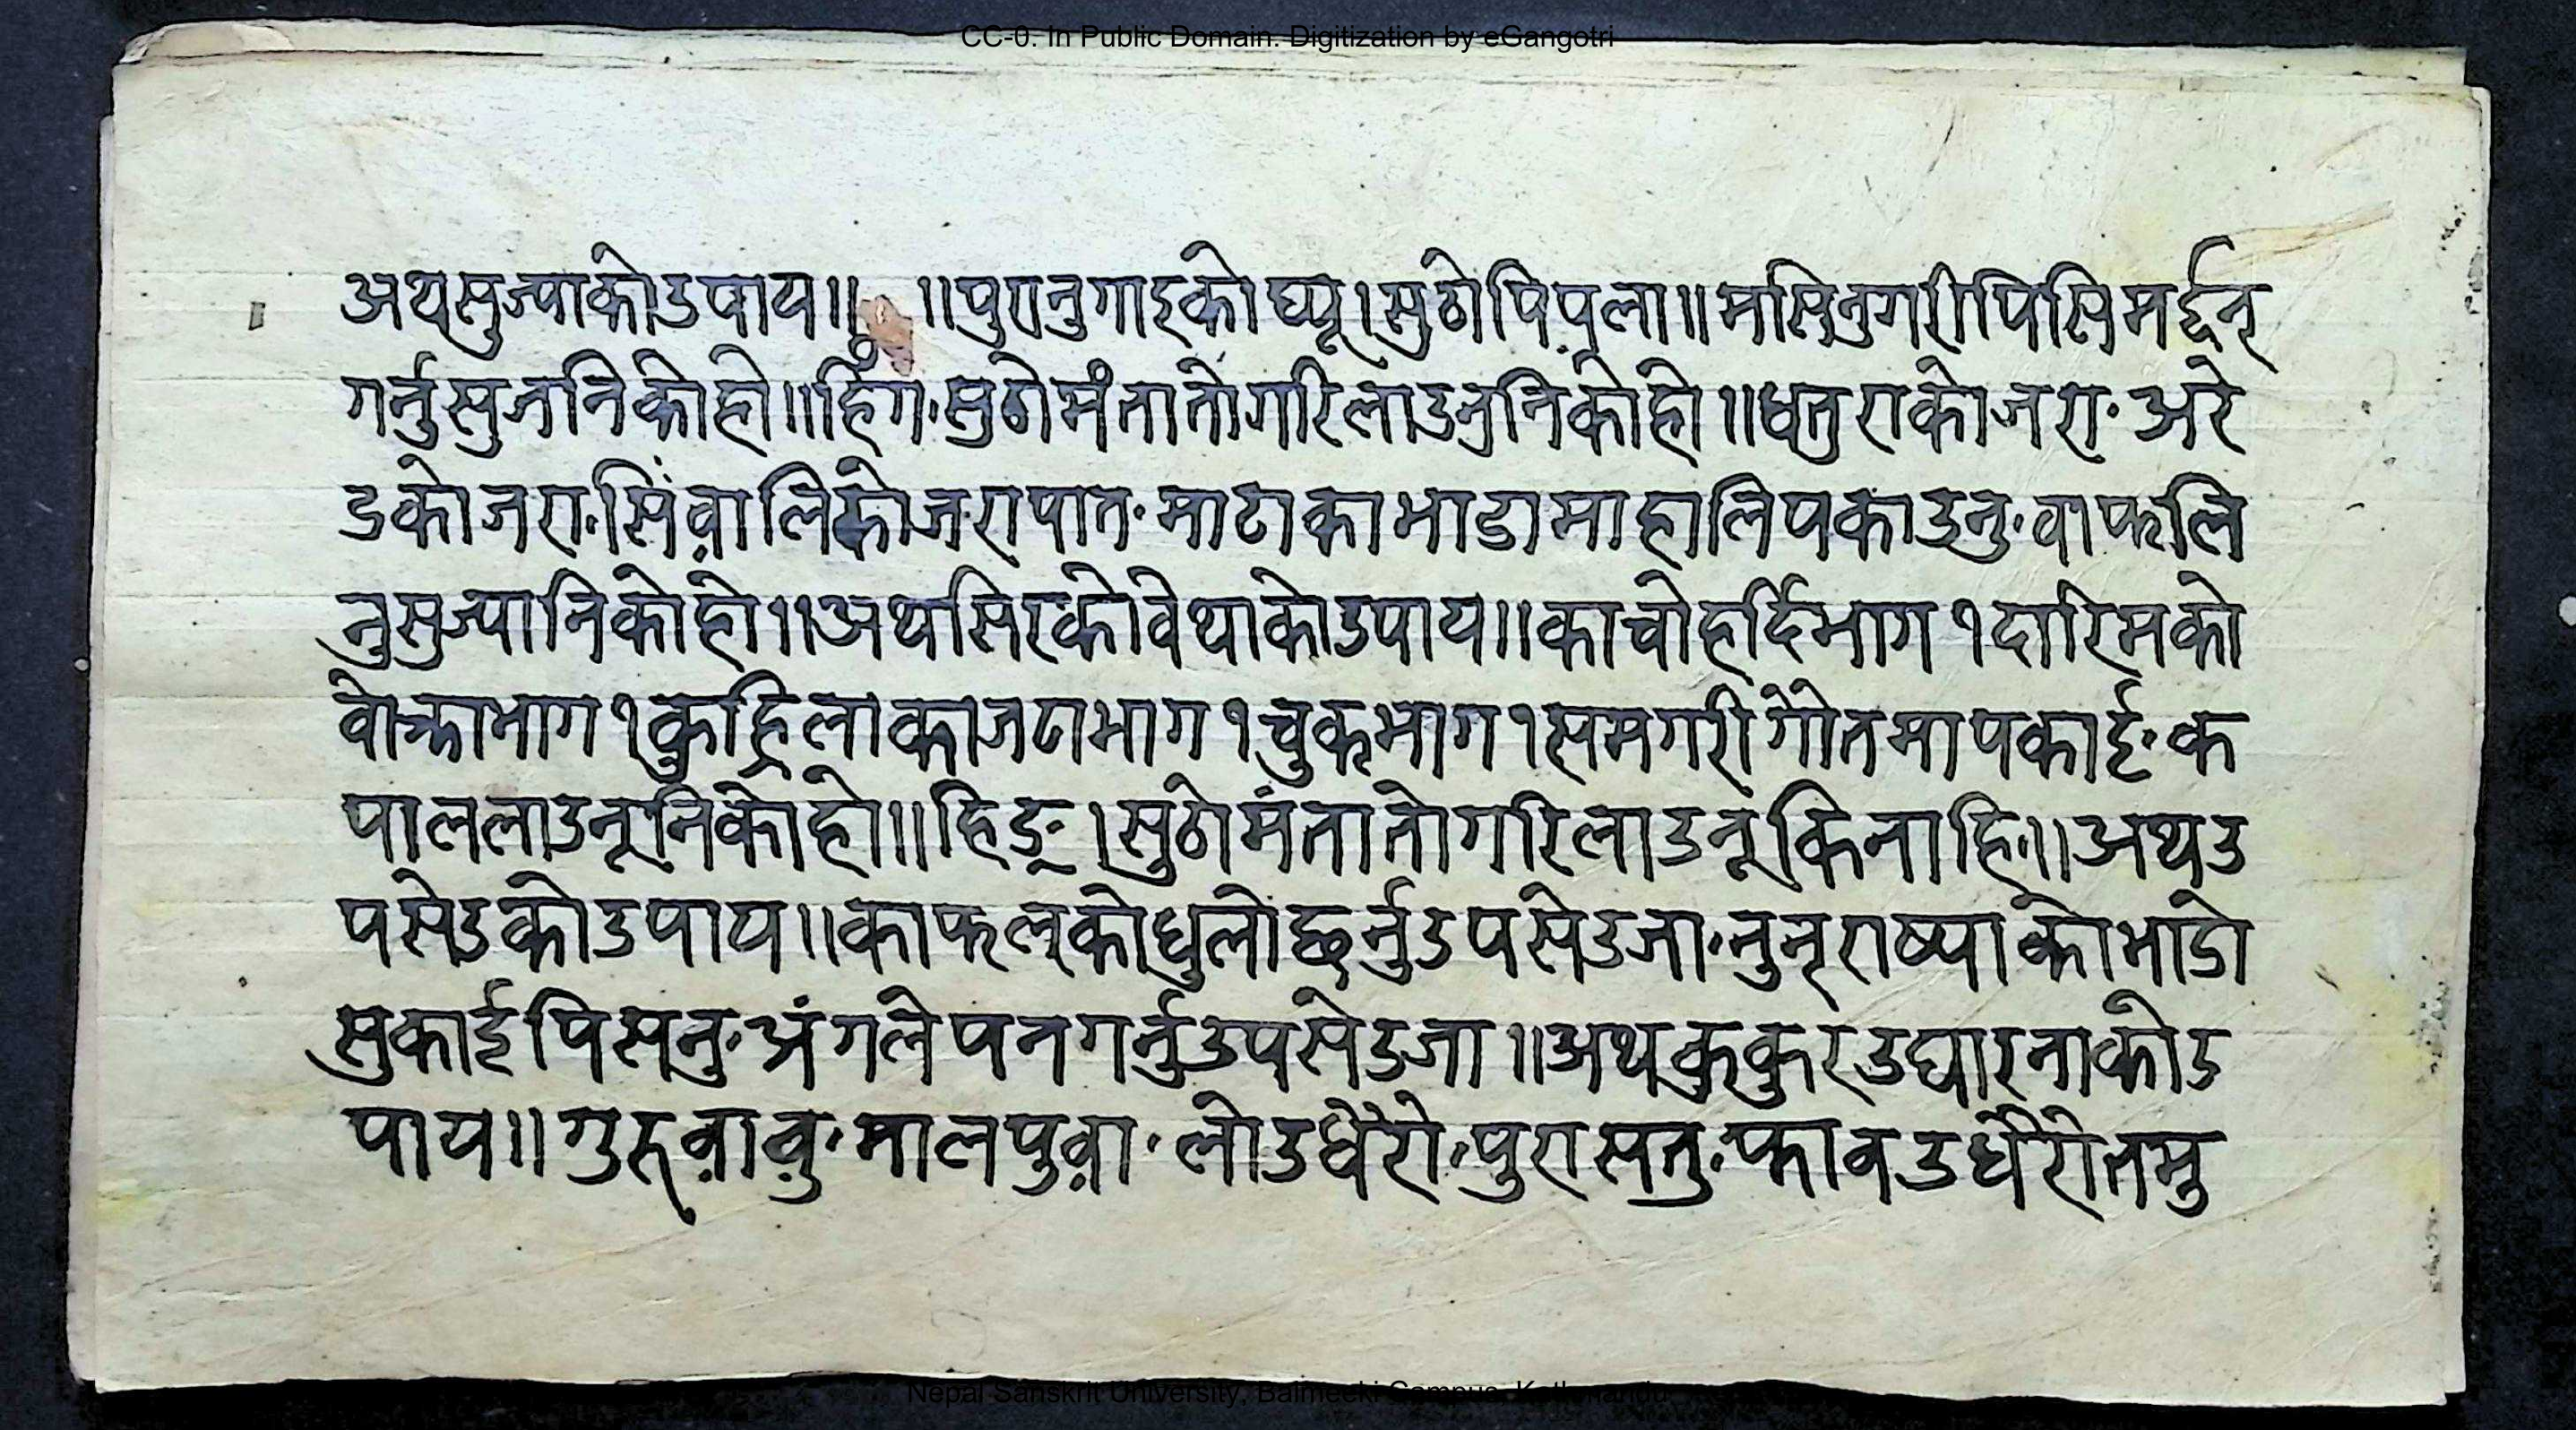 CC-0. In Public Domain. Digitization by eGangotri
अथसुज्याकोउपाय॥ ॥पुरानुगाइकोघ्यू।सुठोपिपला॥मसिनुगरीपिसिमर्द्दन्
गर्नुसुजनिकोहो॥हिँग॰सुठोमंतातोगरिलाउनुनिकोहो॥धतुराकोजरा॰अरे
डकोजरा॰सिंवालिकोजरापात॰माटाकाभाडामाहालिपकाउनु॰वाफलि
नुसुज्यानिकोहो॥अथसिरकोवेथाकोउपाय॥काचोहर्दिभाग१दारिमको
वोक्राभाग१कुह्रिलाकाजटाभाग१चुकभाग१समगरीगौतमापकाई॰क
पाललाउनूनिकोहो॥हिङ्।सुठोमंतातोगरिलाउनूकिनाहि॥अथउ
पसेउकोउपाय॥काफल्कोधुलोछर्नुउपसेउजा॰नुन्राष्याकोभाडो
सुकाईपिसनु॰अंगलेपनगर्नुउपसेउजा॥अथकुकुरउघारनाकोउ
पाय॥गुरुवावु॰मालपुवा॰लोउधैरो॰पुरासतु॰फावउधैरोतमु
Nepal Sanskrit University, Balmeeki Campus, Kathmandu